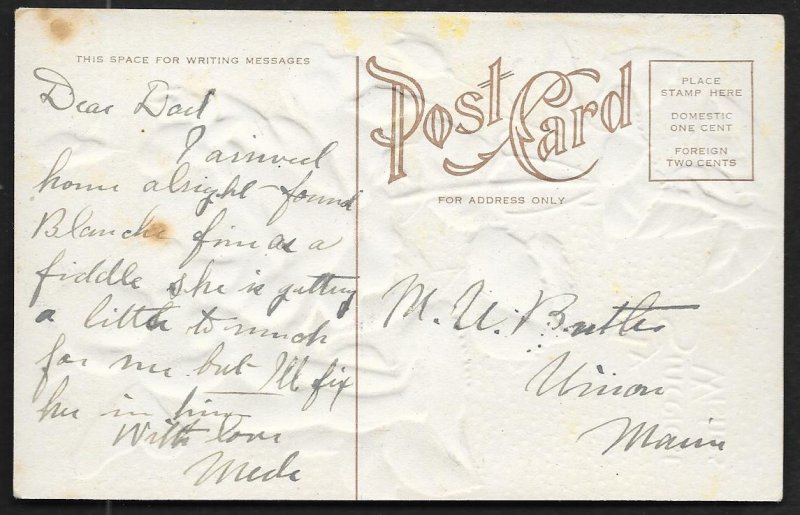 THIS SPACE FOR WRITING MESSAGES
Dear Dad
I arrived
home alright found
Blanche fine as a
fiddle she is getting
a little to much
for me but I'll fix
her in
With love
Mede
Post Card
FOR ADDRESS ONLY
PLACE
STAMP HERE
DOMESTIC
ONE CENT
FOREIGN
TWO CENTS
M. U. Butler
Union
Maine